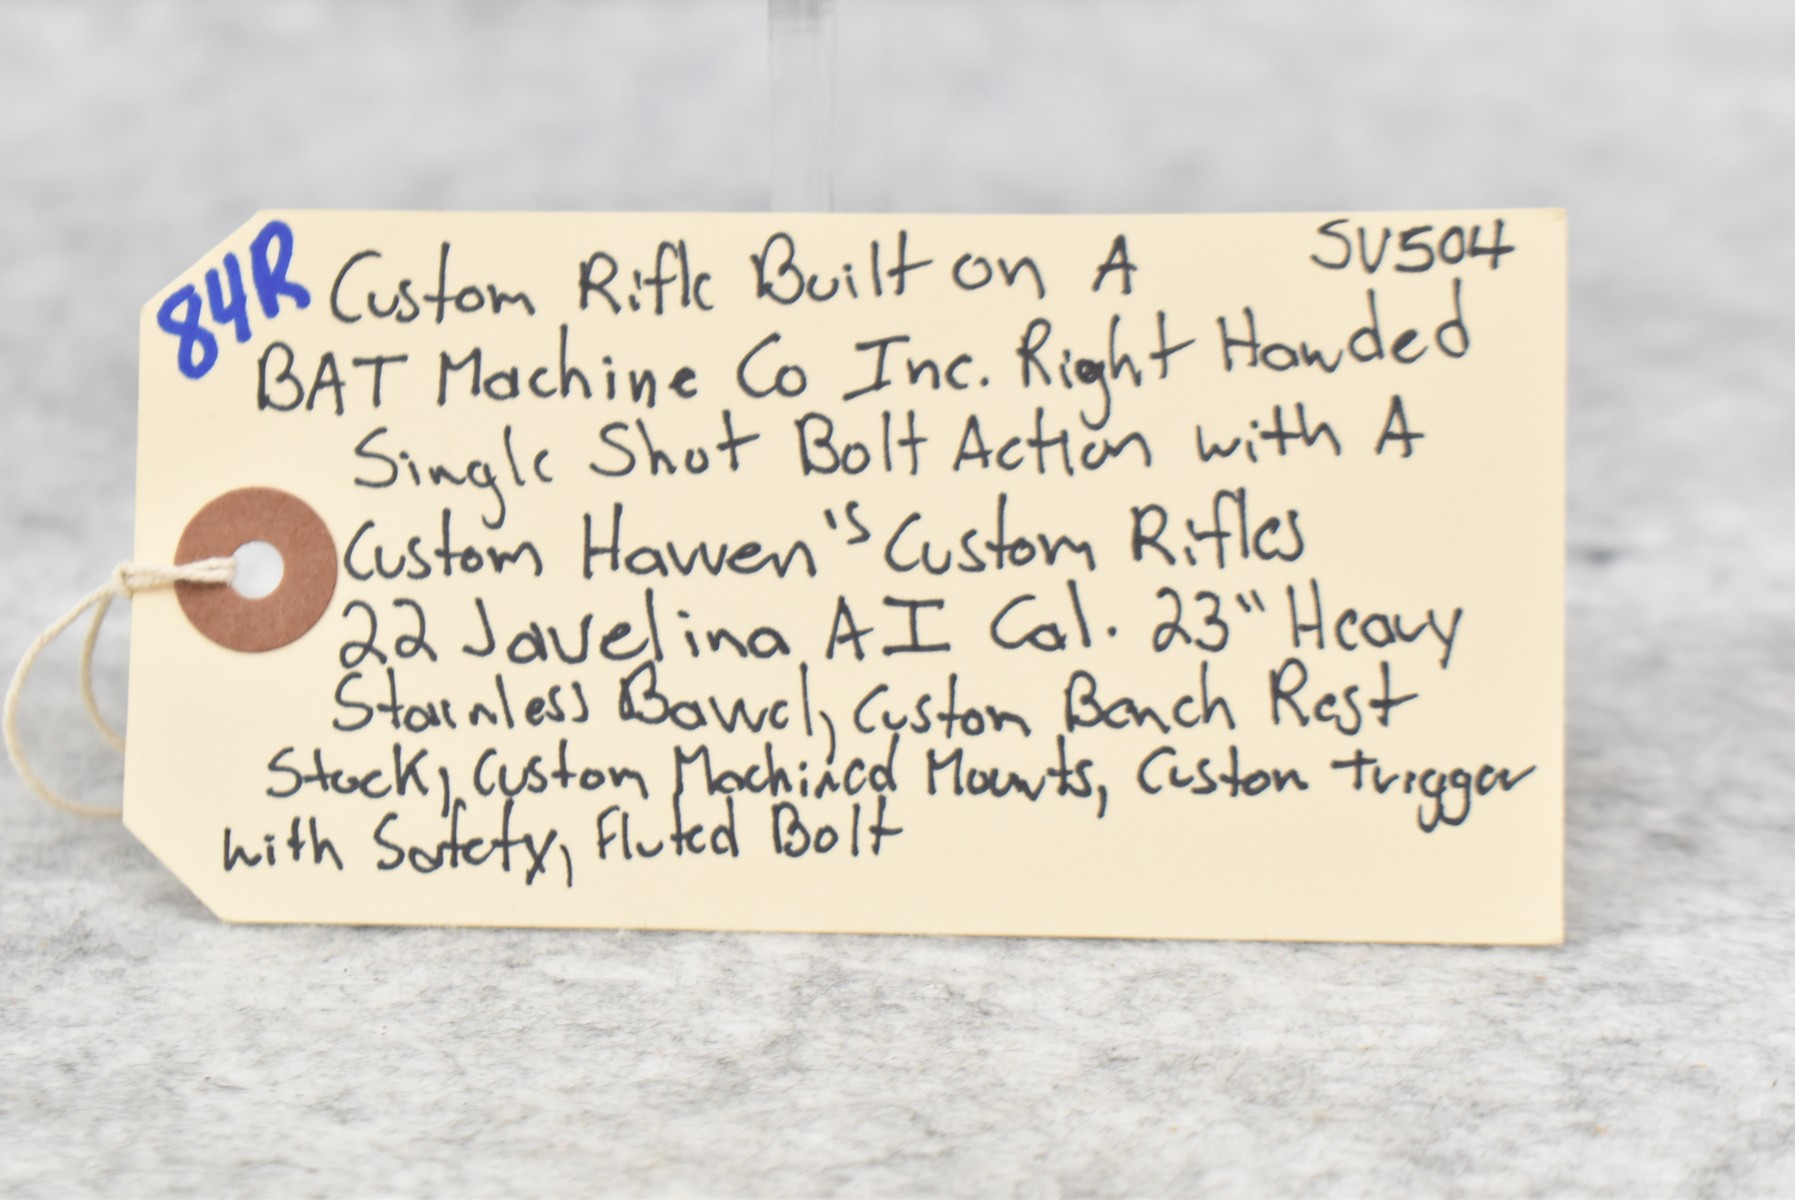 84R Custom Rifle Built on A SV504
BAT Machine Co Inc. Right Handed
Single Shot Bolt Action with A
Custom Havven's Custom Rifles
22 Javelina AI Cal. 23" Heavy
Stainless Barrel, Custom Bench Rest
Stock, Custom Machined Mounts, Custom trigger
with Safety, Fluted Bolt